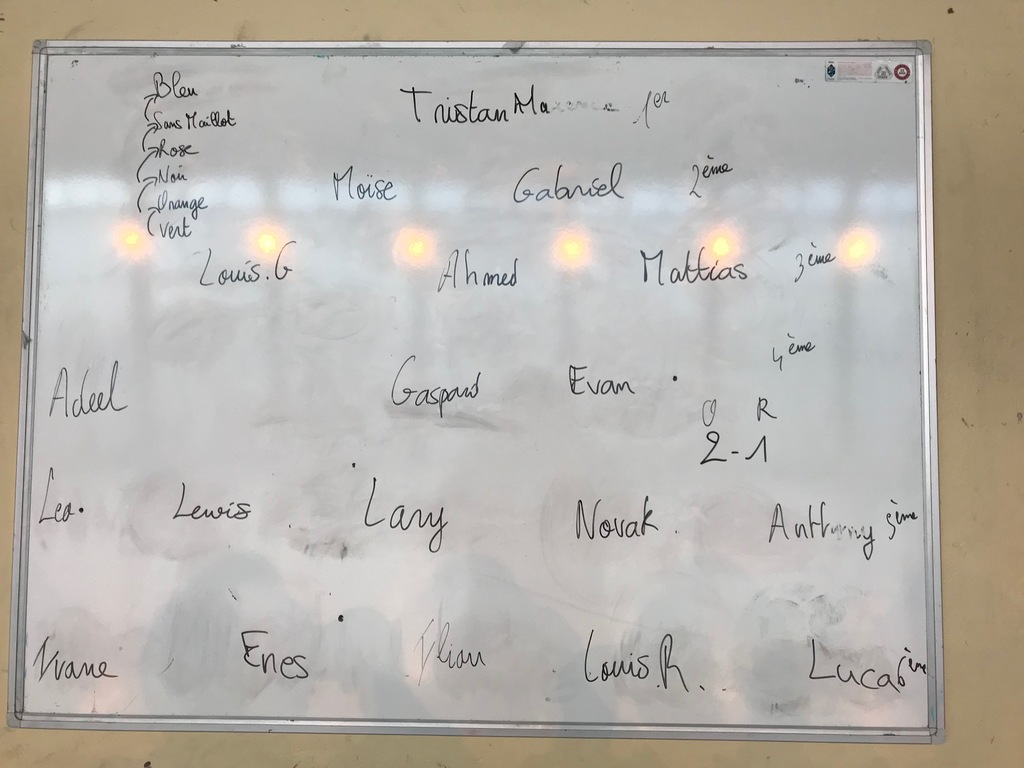 Bleu
Sans Maillot
Rose
Noir
Orange
Vert
Tristan 1er
Moïse Gabriel 2ème
Louis.G Ahmed Mattias 3ème
4ème
Adeel Gaspard Evan
O R
2-1
Leo. Lewis Lany Novak Anthony 5ème
Enes Ilian Louis.R. Lucas 6ème